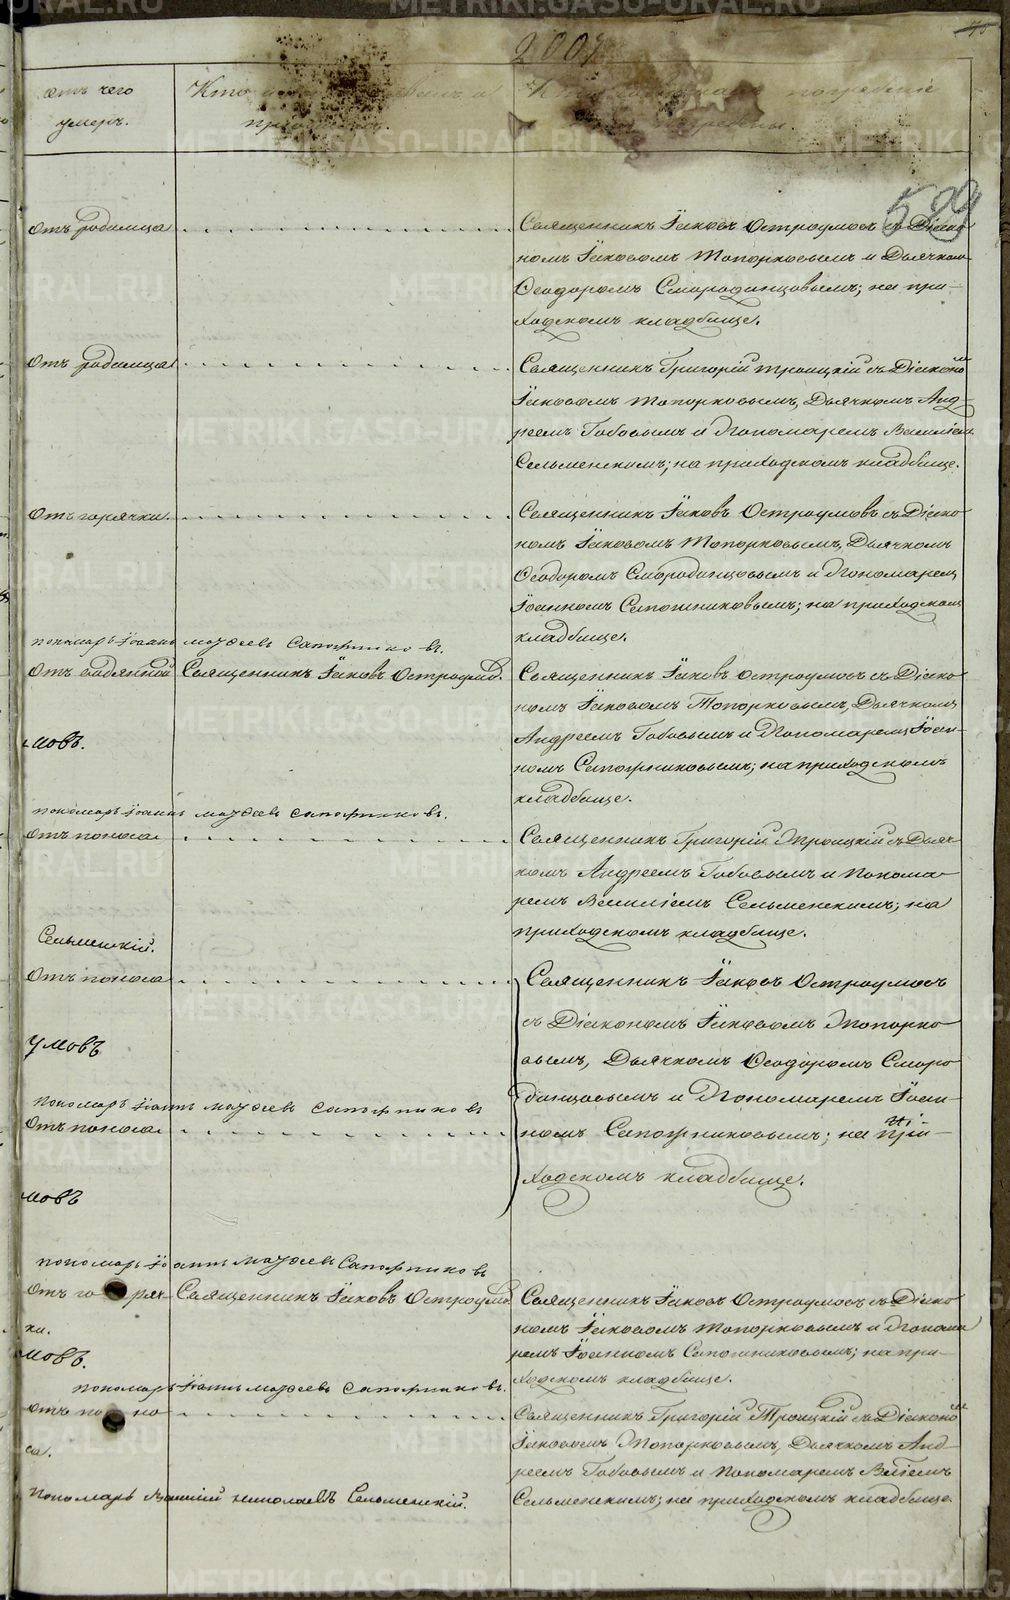 2009
отъ чего
умеръ.
Кто
погребенiе
529
Отъ родимца
Священникъ Iаковъ Остроумовъ съ Дiако-
номъ Iаковомъ Топорковымъ и Дьячкомъ
Ѳеодоромъ Смородинцовымъ; на при-
ходскомъ кладбище.
Отъ родимца
Священникъ Григорiй Троицкiй съ Дiакономъ
Iаковомъ Топорковымъ, Дьячкомъ Анд-
реемъ Бобовымъ и Пономаремъ Василiемъ
Сельменскимъ; на приходскомъ кладбище.
Отъ горячки.
Священникъ Iаковъ Остроумовъ съ Дiако-
номъ Iаковомъ Топорковымъ, Дьячкомъ
Ѳеодоромъ Смородинцовымъ и Пономаремъ
Iоанномъ Сапожниковымъ; на приходскомъ
кладбище.
пономарь Iоаннъ Сапожниковъ.
Отъ Священникъ Iаковъ Остроумо
мовъ.
Священникъ Iаковъ Остроумовъ съ Дiако-
номъ Iаковомъ Топорковымъ, Дьячкомъ
Андреемъ Бобовымъ и Пономаремъ Iоан-
номъ Сапожниковымъ; на приходскомъ
кладбище.
пономарь Iоаннъ Сапожниковъ.
Отъ поноса
Священникъ Григорiй Троицкiй съ Дьяч-
комъ Андреемъ Бобовымъ и Понома-
ремъ Василiемъ Сельменскимъ; на
приходскомъ кладбище.
Сельменскiй.
Отъ поноса
Священникъ Iаковъ Остроумовъ
съ Дiакономъ Iаковомъ Топорко-
вымъ, Дьячкомъ Ѳеодоромъ Сморо-
динцовымъ и Пономаремъ Iоан-
номъ Сапожниковымъ; на при-
ходскомъ кладбище.
умовъ
пономарь Iоаннъ Сапожниковъ
Отъ поноса
мовъ
пономарь Iоаннъ Сапожниковъ
Отъ горяч- Священникъ Iаковъ Остроумо
ки.
мовъ.
Священникъ Iаковъ Остроумовъ съ Дiако-
номъ Iаковомъ Топорковымъ и Понома-
ремъ Iоанномъ Сапожниковымъ; на при-
ходскомъ кладбище.
пономарь Iоаннъ Сапожниковъ.
отъ поно
са.
Священникъ Григорiй Троицкiй съ Дiакономъ
Iаковомъ Топорковымъ, Дьячкомъ Анд-
реемъ Бобовымъ и Пономаремъ Васiлiемъ
Сельменскимъ; на приходскомъ кладбище.
Пономарь Василiй Николаевъ Сельменскiй.
METRIKI.GASO-URAL.RU